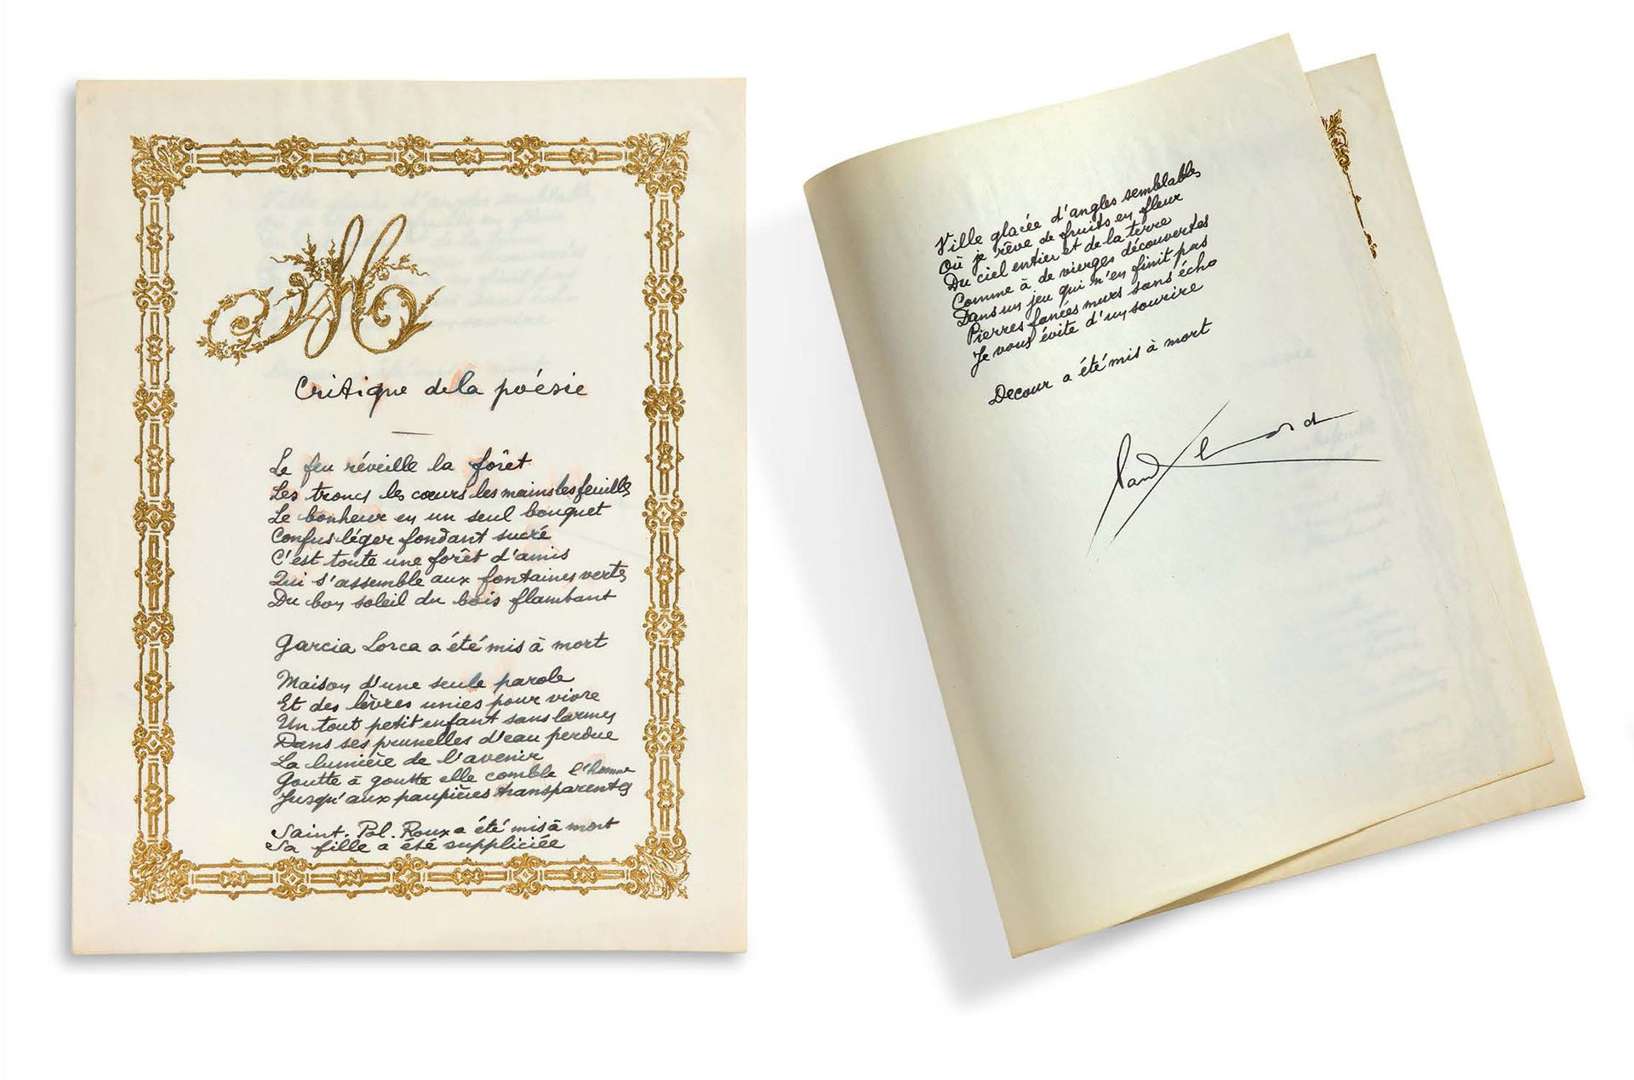 M
Critique de la poésie
Le feu réveille la forêt
Les troncs les cœurs les mains les feuilles
Le bonheur en un seul bouquet
Confus léger fondant sucré
C'est toute une forêt d'amis
Qui s'assemble aux fontaines vertes
Du bon soleil du bois flambant
Garcia Lorca a été mis à mort
Maison d'une seule parole
Et des lèvres unies pour vivre
Un tout petit enfant sans larmes
Dans ses prunelles d'eau perdue
La lumière de l'avenir
Goutte à goutte elle comble l'homme
Jusqu'aux paupières transparentes
Saint-Pol-Roux a été mis à mort
Sa fille a été suppliciée
Ville glacée d'angles semblables
Où je rêve de fruits en fleur
Du ciel entier et de la terre
Comme à de vierges découvertes
Dans un jeu qui n'en finit pas
Pierres fanées murs sans écho
Je vous évite d'un sourire
Decour a été mis à mort
Paul Eluard